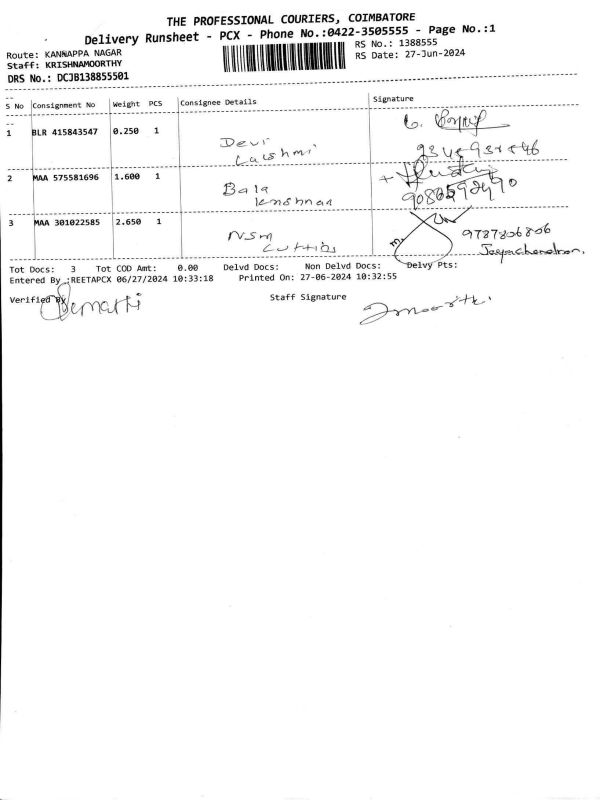 THE PROFESSIONAL COURIERS, COIMBATORE
Delivery Runsheet - PCX - Phone No.:0422-3505555 - Page No.:1
Route: KANNAPPA NAGAR
Staff: KRISHNAMOORTHY
DRS No.: DCJB138855501
RS No.: 1388555
RS Date: 27-Jun-2024
S No Consignment No Weight PCS Consignee Details Signature
1 BLR 415843547 0.250 1
Devi
Lakshmi
2 MAA 575581696 1.600 1
Bala
Krishnan
3 MAA 301022585 2.650 1
NSM
9787806806
Jayachandran.
Tot Docs: 3 Tot COD Amt: 0.00 Delvd Docs: Non Delvd Docs: Delvy Pts:
Entered By :REETAPCX 06/27/2024 10:33:18 Printed On: 27-06-2024 10:32:55
Verified By Staff Signature